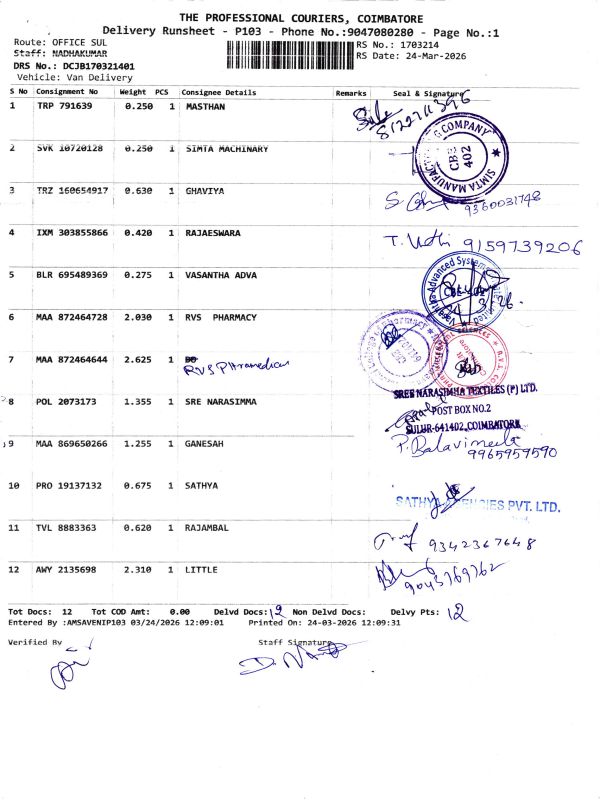 THE PROFESSIONAL COURIERS, COIMBATORE
Delivery Runsheet - P103 - Phone No.:9047080280 - Page No.:1
Route: OFFICE SUL
RS No.: 1703214
Staff: NADHAKUMAR
RS Date: 24-Mar-2026
DRS No.: DCJB170321401
Vehicle: Van Delivery
S No Consignment No Weight PCS Consignee Details Remarks Seal & Signature
1 TRP 791639 0.250 1 MASTHAN
2 SVK 10720128 0.250 1 SIMTA MACHINARY
CBE 402
SIMTA MANUFAC
G COMPANY
3 TRZ 160654917 0.630 1 GHAVIYA
9360031748
4 IXM 303855866 0.420 1 RAJAESWARA
9159739206
5 BLR 695489369 0.275 1 VASANTHA ADVA
6 MAA 872464728 2.030 1 RVS PHARMACY
7 MAA 872464644 2.625 1
RVS
8 POL 2073173 1.355 1 SRE NARASIMMA
SREE NARASIMHA TEXTILES (P) LTD.
POST BOX NO.2
SULUR-641402, COIMBATORE
9 MAA 869650266 1.255 1 GANESAH
9965959590
10 PRO 19137132 0.675 1 SATHYA
SATHYA AGENCIES PVT. LTD.
11 TVL 8883363 0.620 1 RAJAMBAL
9342367648
12 AWY 2135698 2.310 1 LITTLE
Tot Docs: 12 Tot COD Amt: 0.00 Delvd Docs: 12 Non Delvd Docs: Delvy Pts: 12
Entered By :AMSAVENIP103 03/24/2026 12:09:01 Printed On: 24-03-2026 12:09:31
Verified By Staff Signature